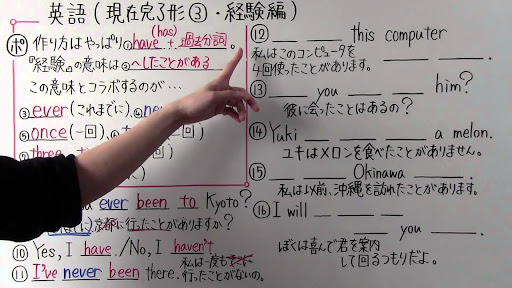 英語(現在完了形③・経験編)
ポ 作り方はやっぱり①have(has) + ②過去分詞。
『経験』の意味は②~したことがある
この意味とコラボするのが…
③ever(これまでに)、④ne
⑤once(一回)、⑥t
⑦three
ever been to Kyoto?
京都に行ったことがありますか?
⑩ Yes, I have. /No, I haven't
⑪ I've never been there.
私は一度も
行ったことがないの。
⑫ ___ ___ this computer ___ ___.
私はこのコンピュータを
4回使ったことがあります。
⑬ ___ you ___ ___ him?
彼に会ったことはあるの?
⑭ Yuki ___ ___ ___ a melon.
ユキはメロンを食べたことがありません。
⑮ ___ ___ Okinawa ___.
私は以前、沖縄を訪れたことがあります。
⑯ I will ___ ___ ___ ___ you ___.
ぼくは喜んで君を案内
して回るつもりだよ。